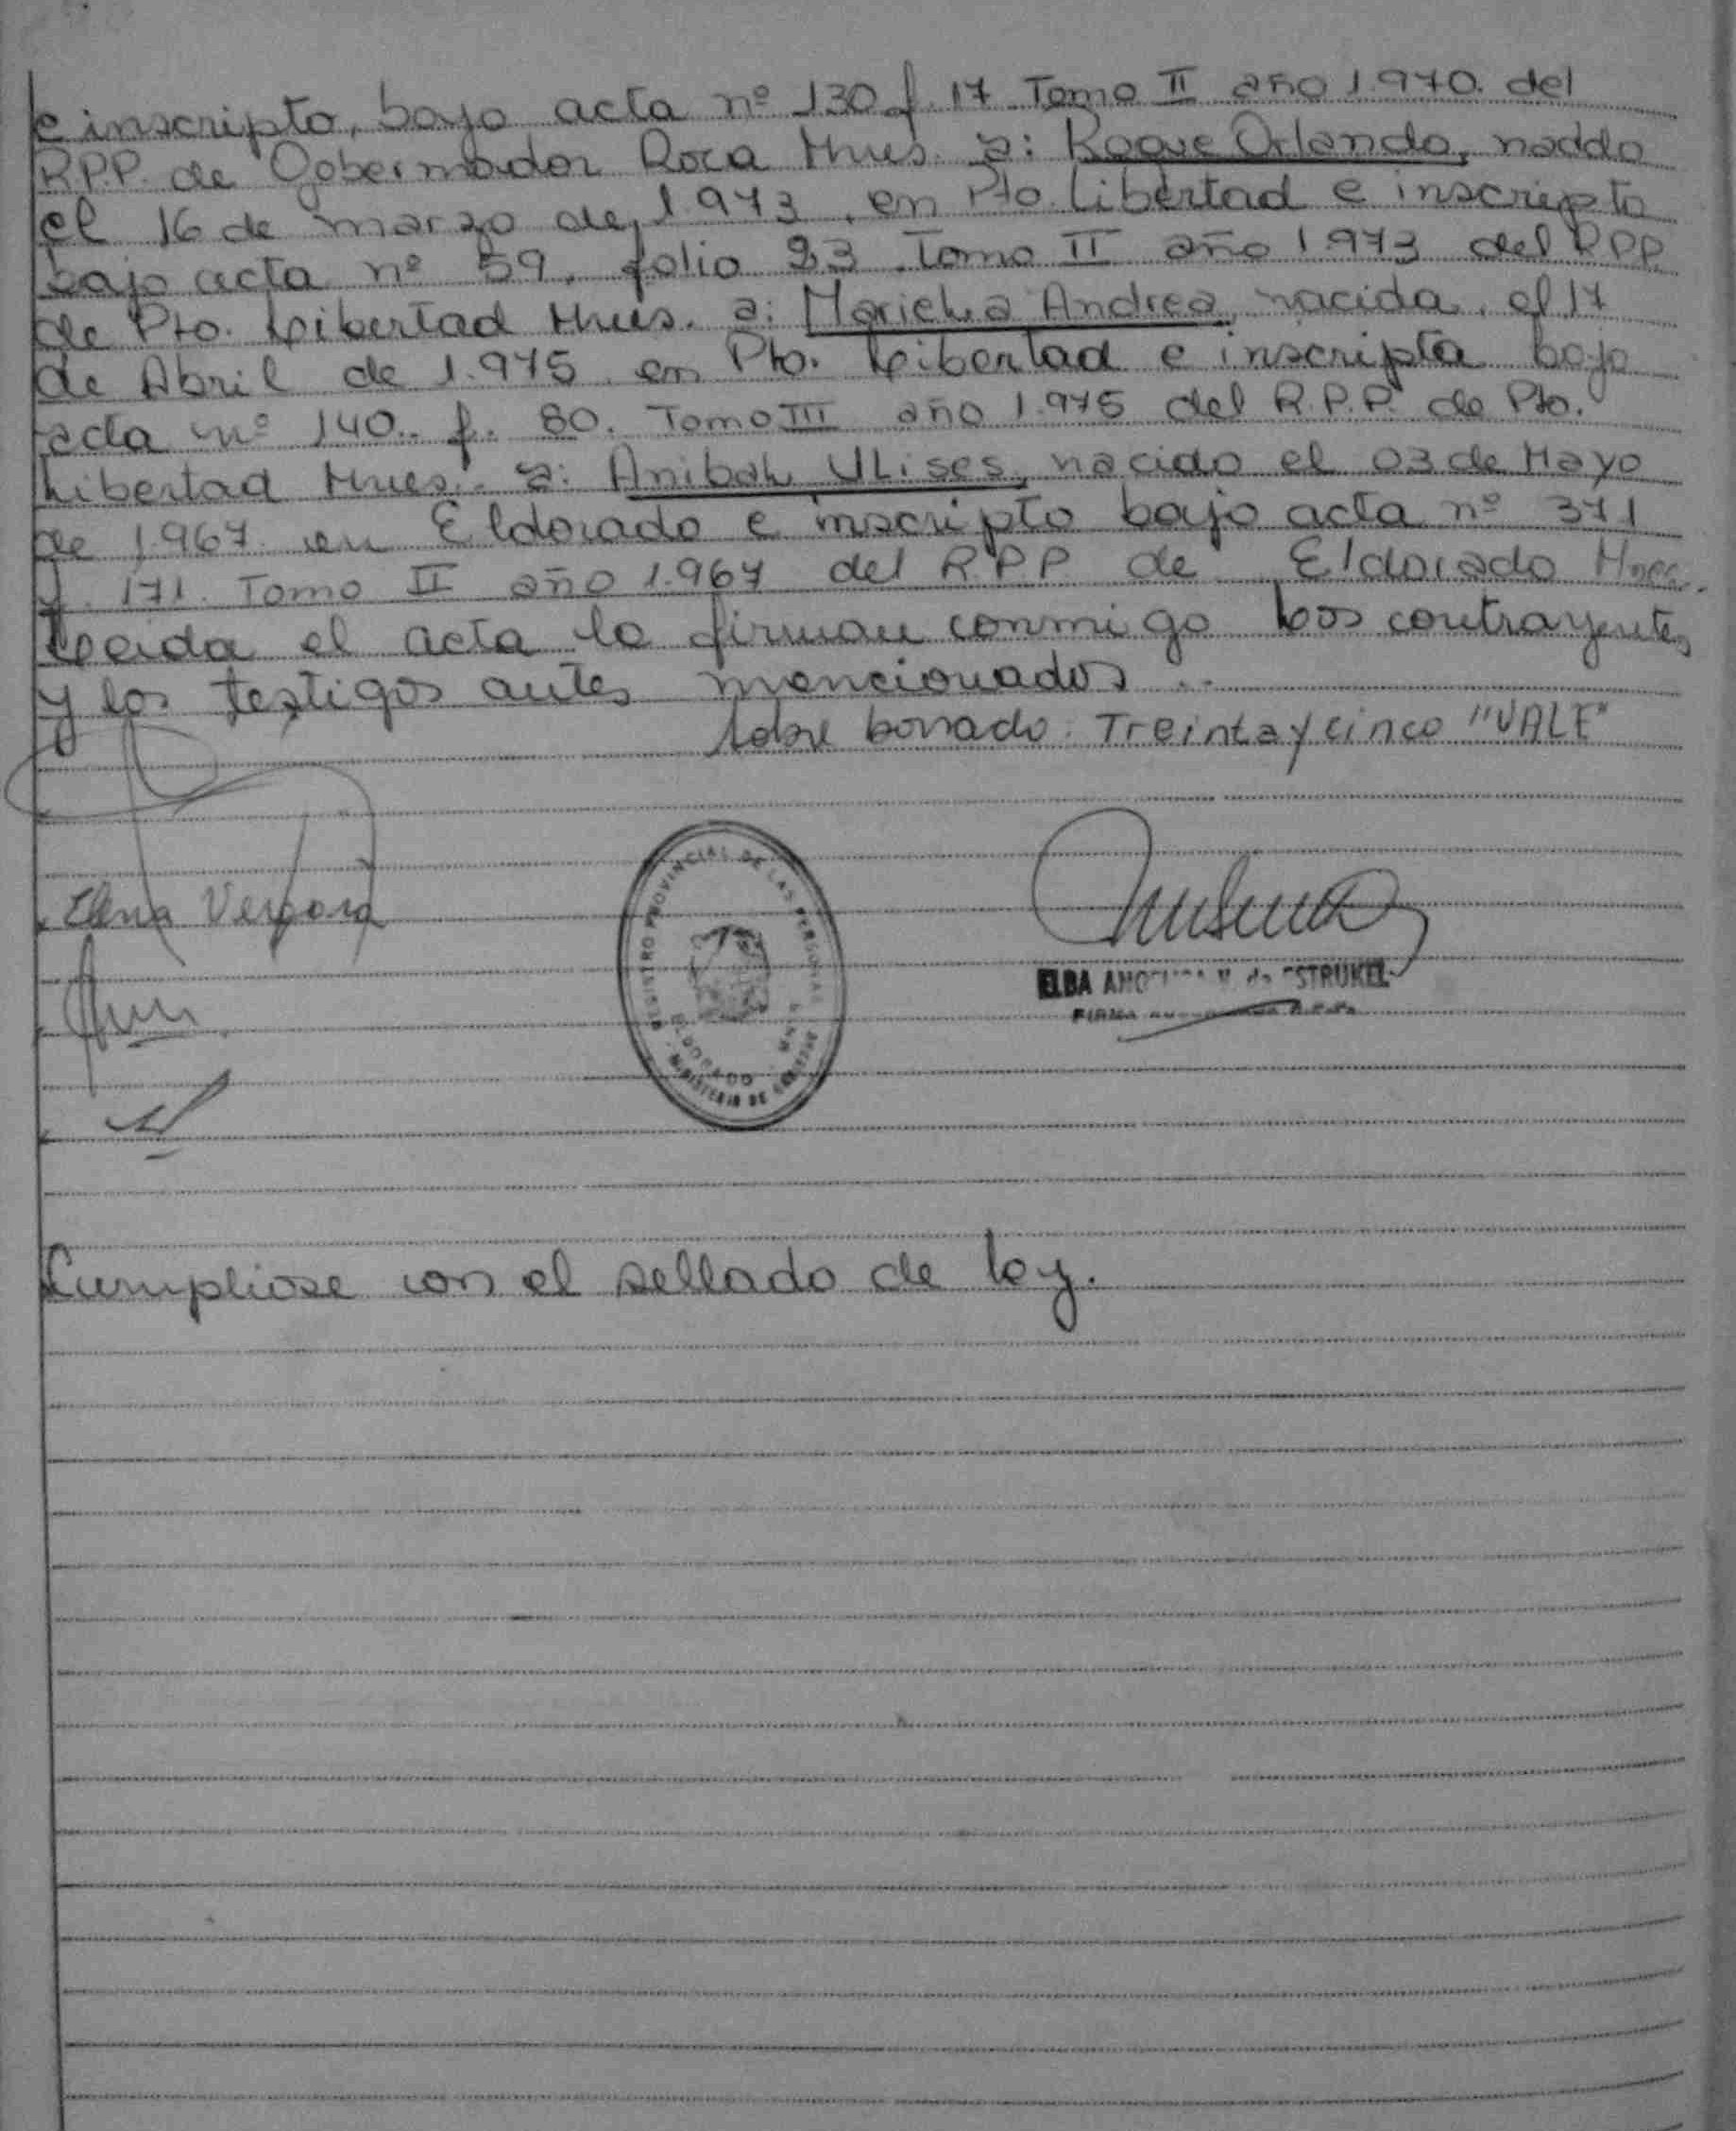 e inscripto, bajo acta nº 130 f. 17 Tomo II año 1.970. del
R.P.P. de Gobernador Roca Mnes. a: Roque Orlando, nacido
el 16 de marzo de 1973, en Pto. Libertad e inscripto
bajo acta nº 59, folio 23 Tomo II año 1.973 del RPP.
de Pto. Libertad Mnes. a: Mariela Andrea, nacida, el 17
de Abril de 1.975 en Pto. Libertad e inscripta bajo
acta nº 140. f. 80. Tomo III año 1.975 del R.P.P. de Pto.
Libertad Mnes. a: Anibal Ulises, nacido el 03 de Mayo
de 1.967 en Eldorado e inscripto bajo acta nº 371
f. 171. Tomo II año 1.967 del R.P.P. de Eldorado Mnes.
Leida el acta la firman conmigo los contrayentes
y los testigos antes mencionados..
Sobre borrado: Treinta y cinco "VALE"
Elena Vergara
REGISTRO PROVINCIAL DE LAS PERSONAS
ELDORADO
MINISTERIO DE GOBIERNO
ELBA M. de ESTRUKEL
FIRMA
Cumpliose con el sellado de ley.